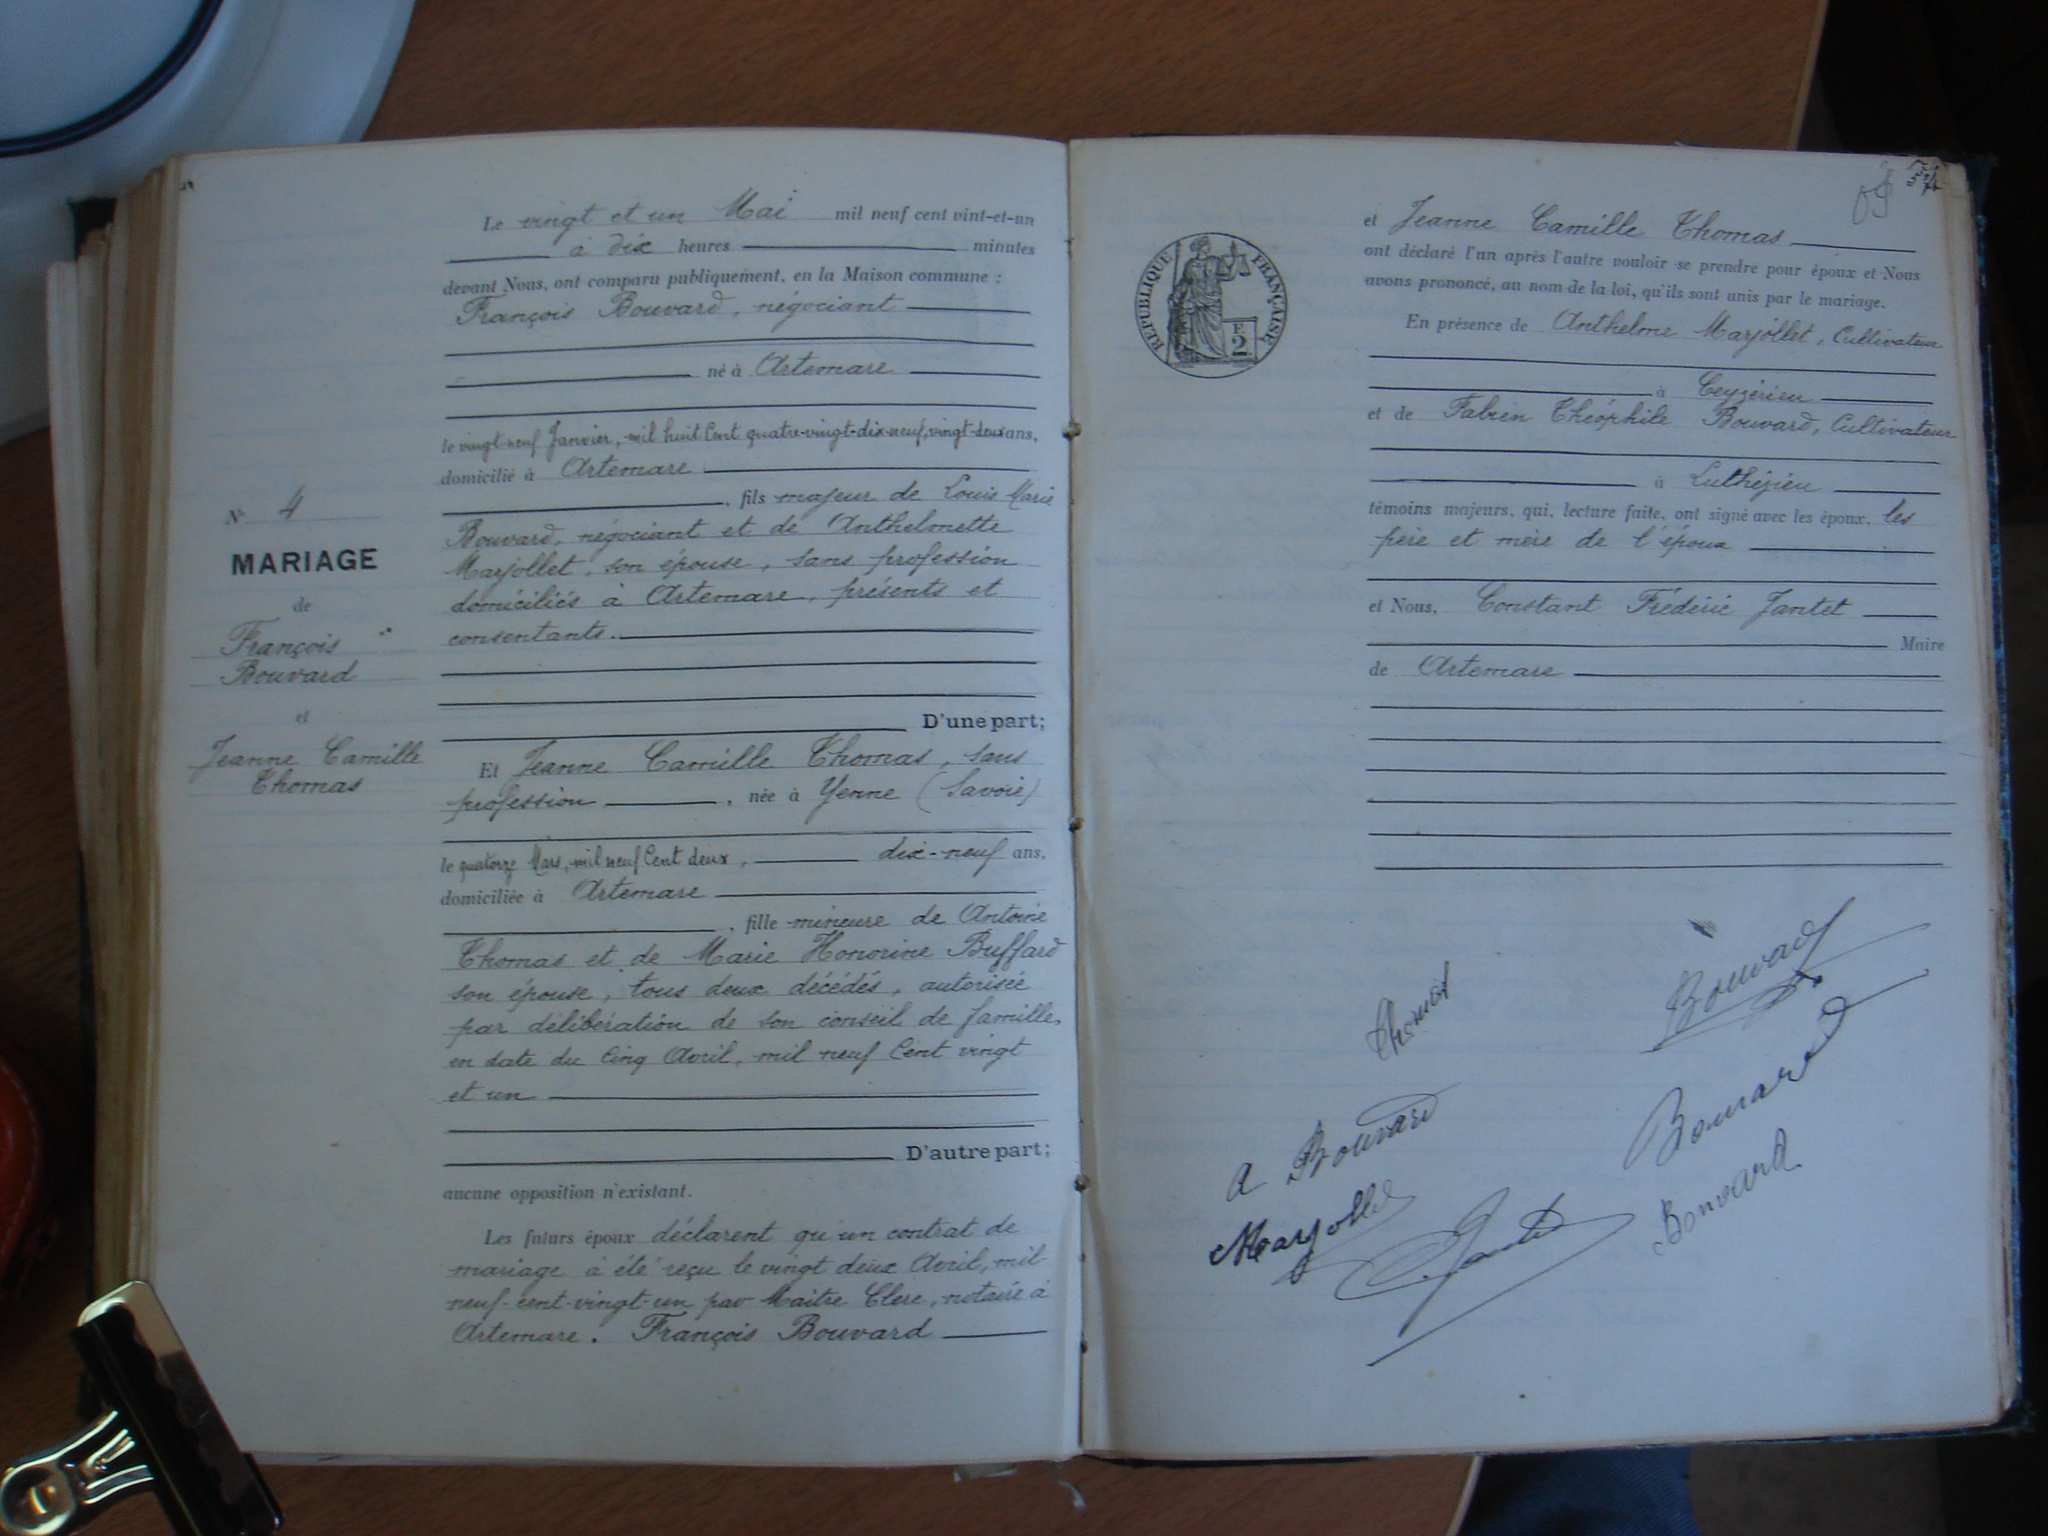 Le vingt et un Mai mil neuf cent vint-et-un
à dix heures minutes
devant Nous, ont comparu publiquement, en la Maison commune :
François Bouvard, négociant
né à Artemare
le vingt-neuf Janvier, mil huit Cent quatre-vingt-dix-neuf, vingt-deux ans,
domicilié à Artemare
, fils majeur de Louis Marie
Bouvard, négociant et de Anthelmette
Marjollet, son épouse, sans profession
domiciliés à Artemare, présents et
consentants.
D'une part;
Et Jeanne Camille Thomas, sans
profession , née à Yenne (Savoie)
le quatorze Mars, mil neuf Cent deux, dix-neuf ans,
domiciliée à Artemare
, fille mineure de Antoine
Thomas et de Marie Honorine Buffard
son épouse, tous deux décédés, autorisée
par délibération de son conseil de famille,
en date du Cinq Avril, mil neuf Cent vingt
et un
D'autre part;
aucune opposition n'existant.
Les futurs époux déclarent qu'un contrat de
mariage a été reçu le vingt deux Avril, mil-
neuf-cent-vingt-un par Maître Clerc, notaire à
Artemare. François Bouvard
N° 4
MARIAGE
de
François
Bouvard
et
Jeanne Camille
Thomas
RÉPUBLIQUE FRANÇAISE
F.
2
et Jeanne Camille Thomas
ont déclaré l'un après l'autre vouloir se prendre pour époux et Nous
avons prononcé, au nom de la loi, qu'ils sont unis par le mariage.
En présence de Anthelme Marjollet, Cultivateur
à Ceyzérieu
et de Fabien Théophile Bouvard, Cultivateur
à Luthézieu
témoins majeurs, qui, lecture faite, ont signé avec les époux, les
père et mère de l'époux
et Nous, Constant Frédéric Jantet
Maire
de Artemare
Thomas
Bouvard
A Bouvard
Bouvard
Marjollet
Jantet
Bouvard